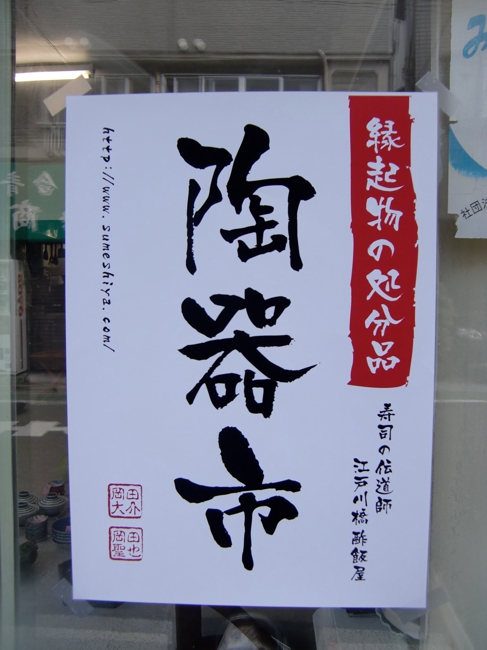 縁起物の処分品
陶器市
寿司の伝道師
江戸川橋酢飯屋
http://www.sumeshiya.com/
岡田大介
岡田聖也
社団法
み